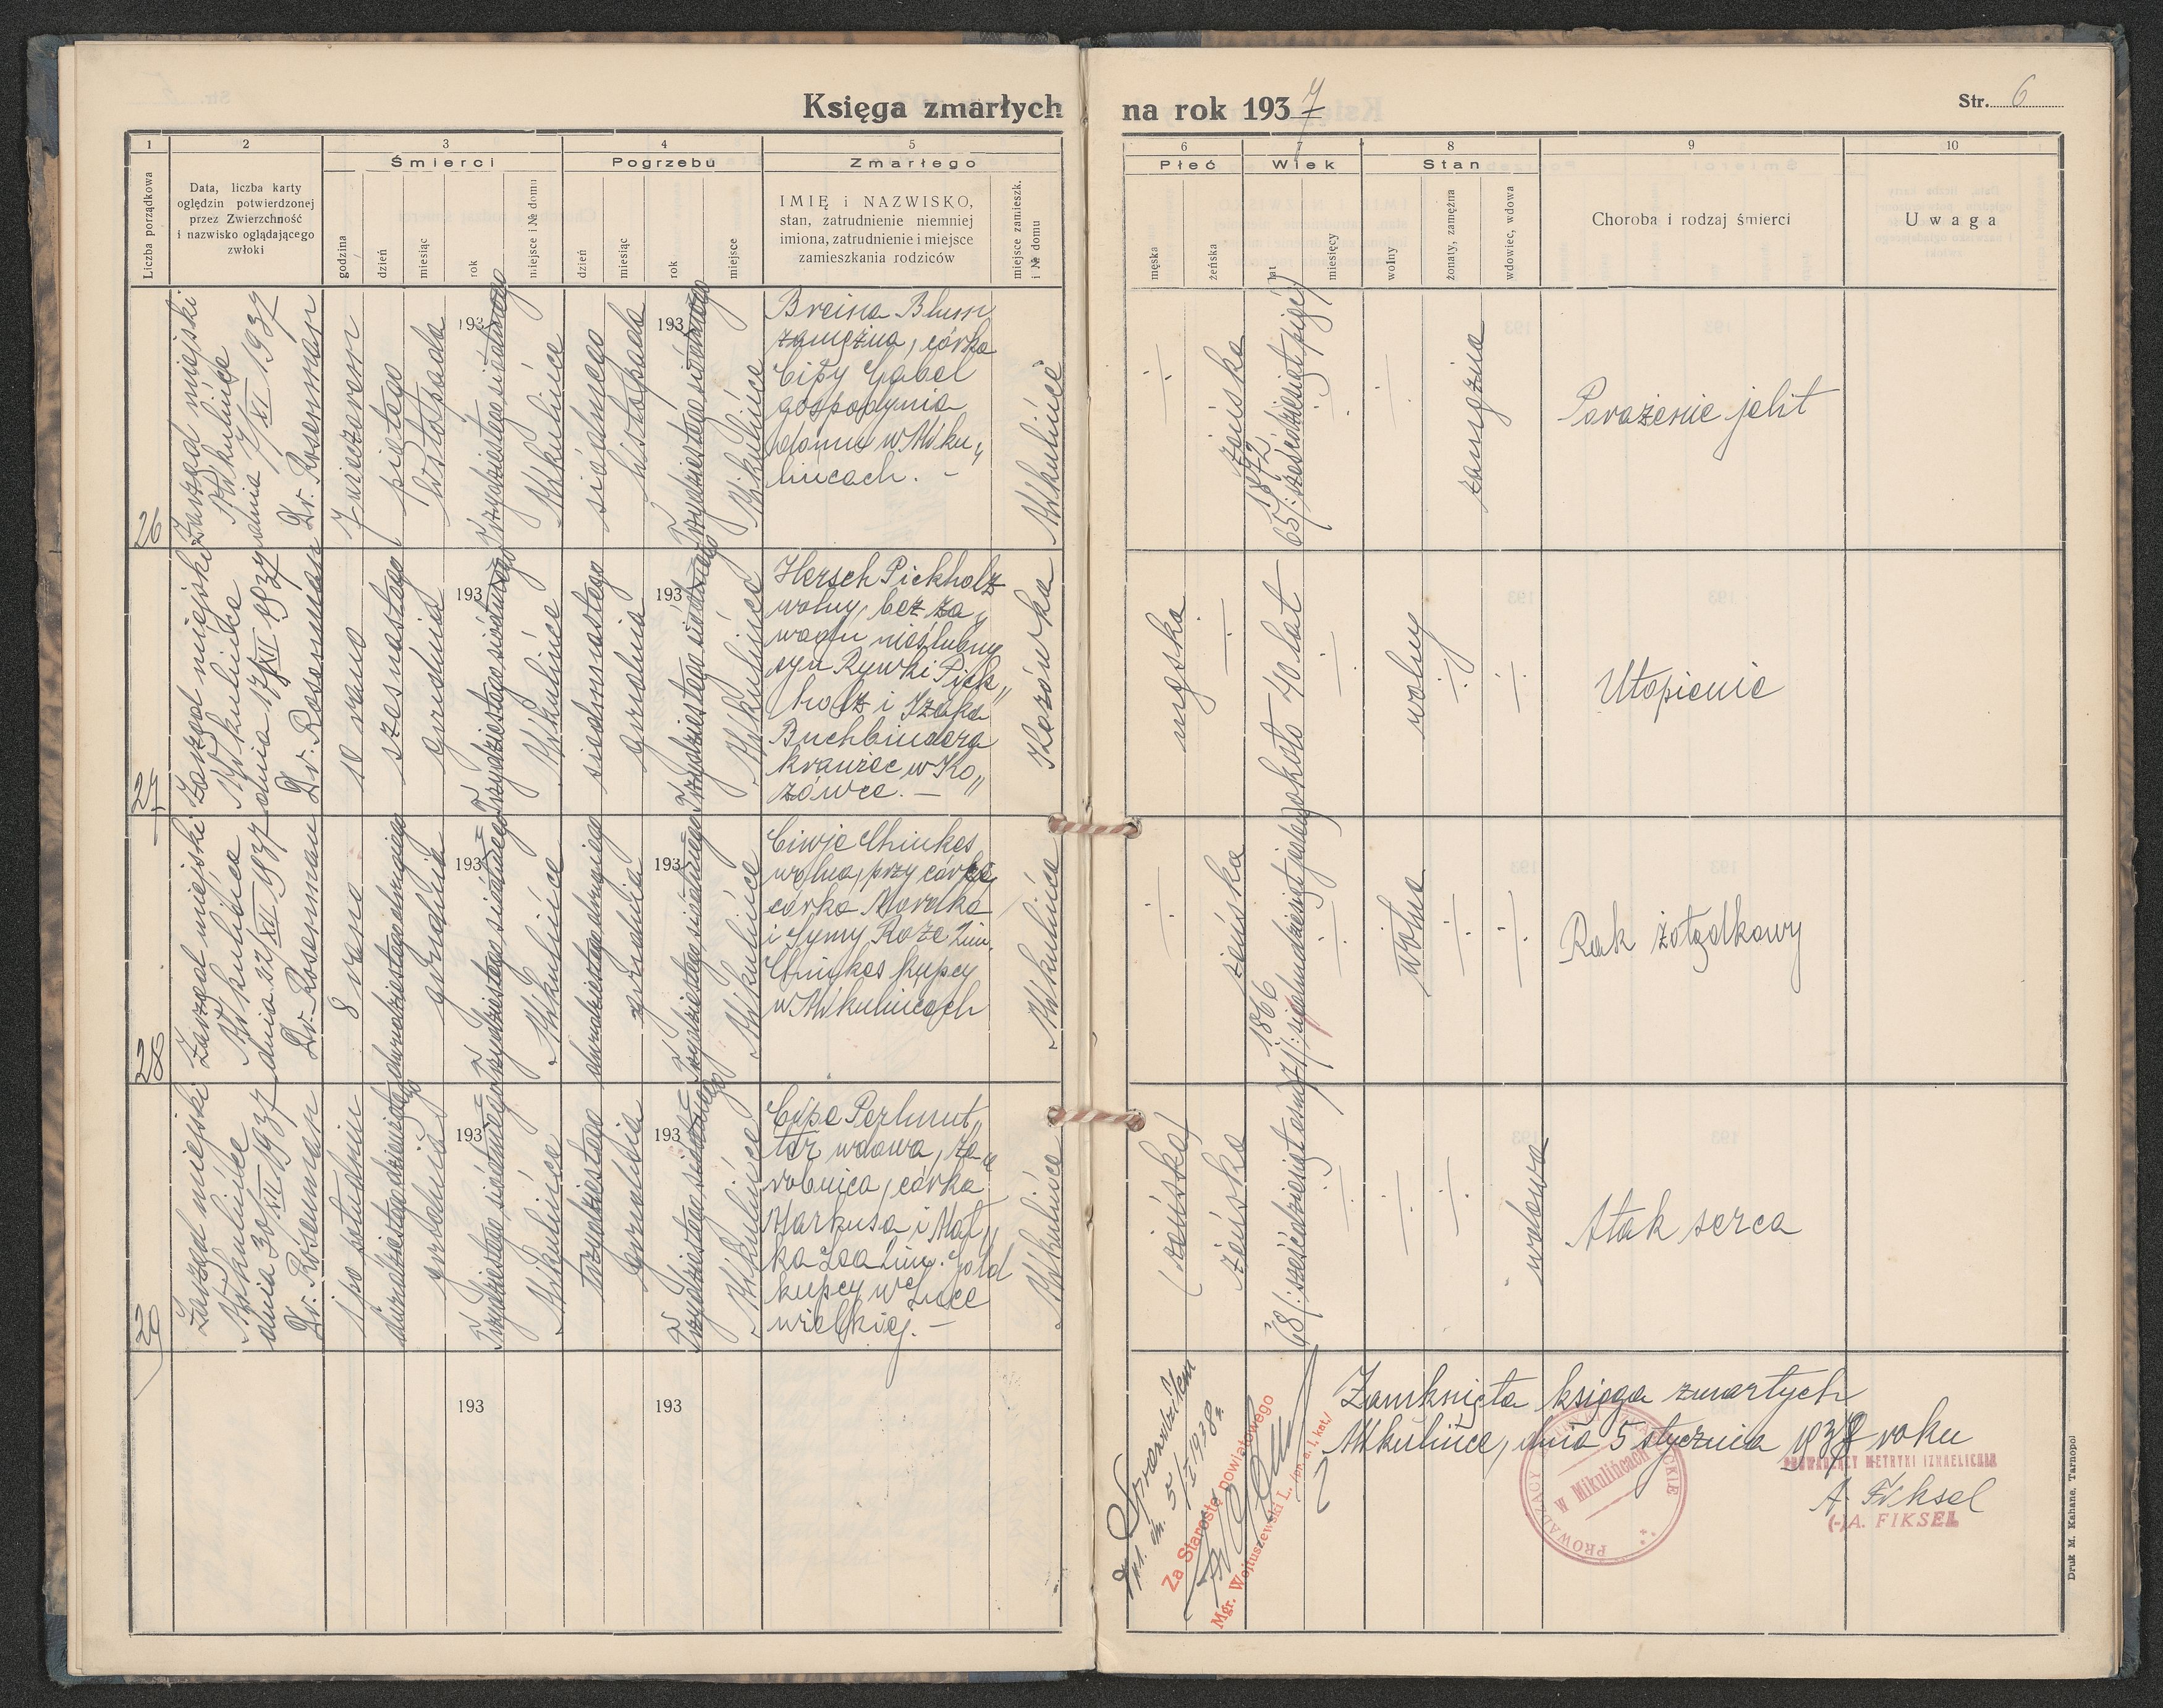 Księga zmarłych na rok 1937
Str. 6
1 2 3 4 5 6 7 8 9 10
Śmierci Pogrzebu Zmarłego Płeć Wiek Stan
Liczba porządkowa
Data, liczba karty
oględzin potwierdzonej
przez Zwierzchność
i nazwisko oglądającego
zwłoki
godzina
dzień
miesiąc
rok
miejsce i № domu
dzień
miesiąc
rok
miejsce
IMIĘ i NAZWISKO,
stan, zatrudnienie niemniej
imiona, zatrudnienie i miejsce
zamieszkania rodziców
miejsce zamieszk.
i № domu
męska
żeńska
lat
miesięcy
wolny
żonaty, zamężna
wdowiec, wdowa
Choroba i rodzaj śmierci
Uwaga
26
Zarząd miejski
Mikulińce
dnia 7/XI 1937
Dr. Rosenman
7 wieczorem
piątego
listopada
193
Trzydziestego siódmego
Mikulińce
siódmego
listopada
193
Trzydziestego siódmego
Mikulińce
Breina Blum
zamężna, córka
Cipy Gabel
gospodynia
domu w Miku„
lińcach. –
Mikulińce
żeńska
1872
65/: sześćdziesiąt pięć/
zamężna
Porażenie jelit
27
Zarząd miejski
Mikulińce
dnia 17/XII 1937
Dr. Rosenman
10 rano
szesnastego
grudnia
193
Trzydziestego siódmego
Mikulińce
siedmnastego
grudnia
193
Trzydziestego siódmego
Mikulińce
Hersch Pickholz
wolny, bez za„
wodu nieślubny
syn Rywki Pick„
holz i Izaka
Buchbindera
krawiec w Ko„
zówce. –
Kozówka
męska
około 40 lat
wolny
Utopienie
28
Zarząd miejski
Mikulińce
dnia 22/XII 1937
Dr. Rosenman
8 rano
dwudziestego drugiego
grudnia
193
Trzydziestego siódmego
Mikulińce
dwudziestego drugiego
grudnia
193
Trzydziestego siódmego
Mikulińce
Ciwje Chinkes
wolna, przy córce
córka Mordka
i Symy Roze 2im.
Chinkes kupcy
w Mikulińcach
Mikulińce
żeńska
1866
71/: siedmdziesiąt jeden/
wolna
Rak żołądkowy
29
Zarząd miejski
Mikulińce
dnia 30/XII 1937
Dr. Rosenman
1 po południu
dwudziestego dziewiątego
grudnia
193
Trzydziestego siódmego
Mikulińce
Trzydziestego
grudnia
193
Trzydziestego siódmego
Mikulińce
Cype Perlmut„
ter wdowa, za„
robnica, córka
Markusa i Mat„
ka Lea 2im. Gold
kupcy w Łuce
wielkiej. –
Mikulińce
(żeńska)
żeńska
68/: sześćdziesiąt osm/
wdowa
Atak serca
193
193
Zamknięta księga zmarłych
Mikulińce, dnia 5 stycznia 1938 roku
PROWADZĄCY METRYKI IZRAELICKIE
A. Fiksel
(-) A. FIKSEL
w Mikulińcach
PROWADZĄCY
Sprawdziłem
dn. 5/I 1938
Za Starostę powiatowego
Mgr. Wojtuszewski L.
Druk M. Kahane, Tarnopol